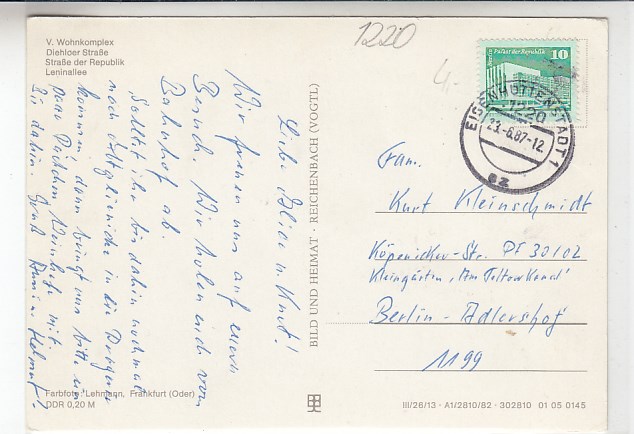 V. Wohnkomplex
Diehloer Straße
Straße der Republik
Leninallee
1220
4,-
Palast der Republik
10
DDR
EISENHÜTTENSTADT 1
1220
23.-6.87-12
az
Liebe u. Kurt!
Wir freuen uns auf euern
Besuch. Wir holen euch vom
Bahnhof ab.
Solltet ihr bis dahin nochmal
nach in die
kommen, dann bringt uns bitte ein
paar Päckchen mit.
Bis dahin. Gruß u. Helmut!
BILD UND HEIMAT · REICHENBACH (VOGTL)
Fam.
Kurt Kleinschmidt
Köpenicker-Str. PF 30102
Kleingärten „Am Teltowkanal“
Berlin-Adlershof
1199
Farbfoto: Lehmann, Frankfurt (Oder)
DDR 0,20 M
III/26/13 · A1/2810/82 · 302810 01 05 0145